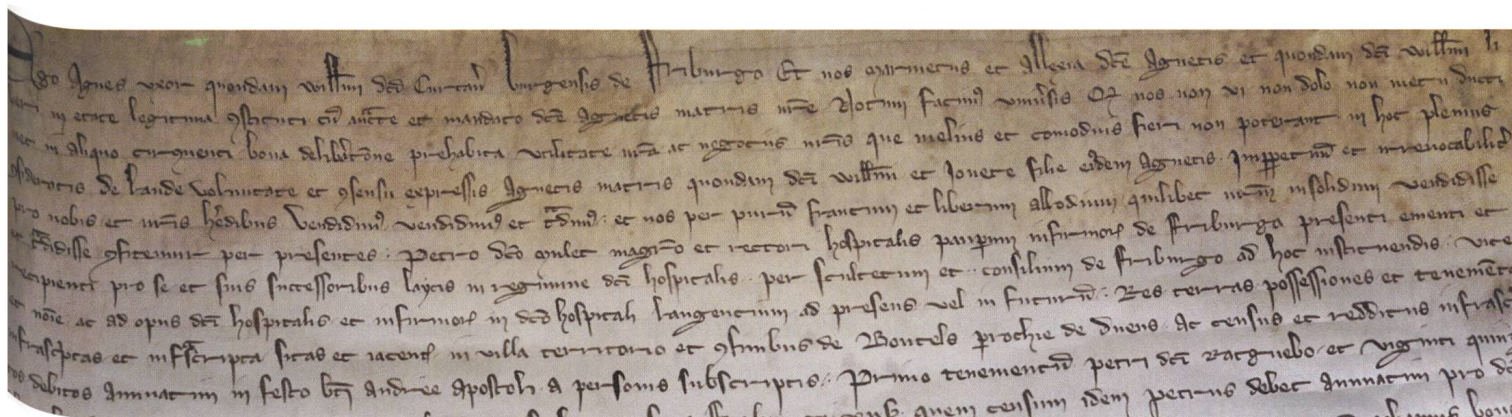 Ego Agnes uxor quondam Will'mi dc̄i Curtan' burgensis de Friburgo Et nos Mermetus et Allexia dc̄e Agnetis et quondam dc̄i Will'mi li
beri in etate legitima ꝯstituti cū auc̄te et mandato dc̄e Agnetis matris nr̄e Notum facimꝰ univ̄sis Qꝫ nos non vi non dolo non metu ducti
nec in aliquo circumventi bona delib̄atōne prehabita utilitate nr̄a ac negociis nr̄is que melius et comodius fieri non poterant in hoc plenius
ꝯsideratis de laude voluntate et ꝯsensu expressis Agnetis matris quondam dc̄i Will'mi et Jovete filie eiꝰdem Agnetis Imꝑpetuū et irrevocabilit̄
pro nobis et nr̄is h̄edibus vendidimꝰ et t̄dimꝰ et nos per purū francum et liberum allodium quilibet nr̄m insolidum vendidisse
et t̄didisse ꝯfitemur per presentes Petro dc̄o magr̄o et rectori hospitalis pauꝑum infirmoꝝ de Friburgo presenti ementi et
recipienti pro se et suis successoribus laycis in regimine dc̄i hospitalis per scultetum et consilium de Friburgo ad hoc instituendis vice
et noīe ac ad opus dc̄i hospitalis et infirmoꝝ in dc̄o hospitali langentium ad presens vel in futurū Res terras possessiones et tenementa
infrascͥptas et infrascripta sitas et iacentes in villa territorio et ꝯfinibus de Bontels ꝑrochie de Duens Ac census et redditus infrasc
debitos annuatim in festo bt̄i Andree apostoli a personis subscriptis Primo tenementū petri dc̄i Racguebo et viginti quin
quem censum idem petrus debet annuatim pro